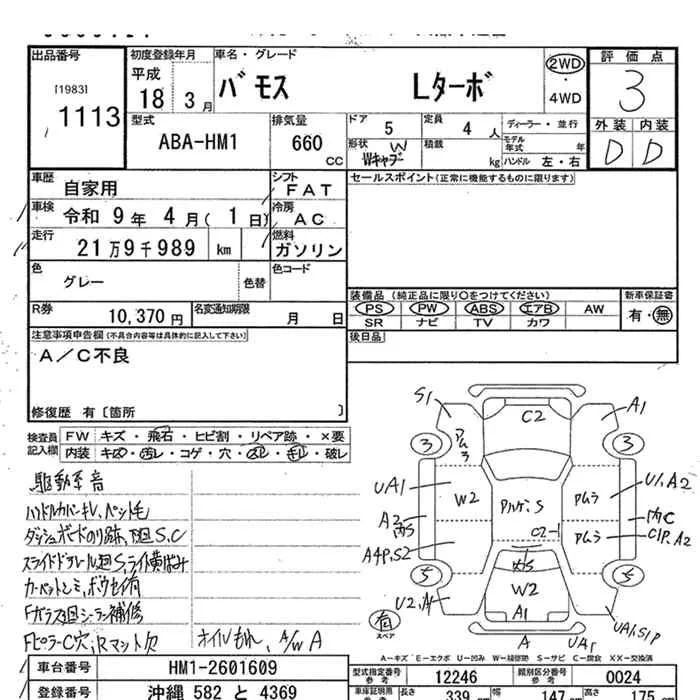 出品番号
[1983]
1113
初度登録年月
平成
18年 3月
車名・グレード
バモス Lターボ
2WD
・
4WD
評価点
3
外装 内装
D D
型式
ABA-HM1
排気量
660
CC
ドア
5
定員
4人
ディーラー・並行
形状
Wキャブ
積載
kg
モデル年式 年
ハンドル 左・右
車歴
自家用
シフト
FAT
セールスポイント(正常に機能するものに限ります)
車検
令和 9年 4月( 1日)
冷房
AC
走行
21万9千989 km
燃料
ガソリン
色
グレー
色替
色コード
装備品(純正品に限り○をつけてください)
PS PW ABS エアB AW
SR ナビ TV カワ
新車保証書
有・無
R券
10,370円
名変通知期限
月 日
後日品
注意事項申告欄(不具合内容等は具体的に記入して下さい)
A/C不良
修復歴 有〔箇所 〕
検査員記入欄
FW キズ・飛石・ヒビ割・リペア跡・×要
内装 キズ・汚レ・コゲ・穴・スレ・キレ・破レ
駆動系音
ハンドルカバーキレ、ペット毛
ダッシュボードのり跡、下回S,C
カーペットシミ、ボウセイ有
Fガラス廻シーラー補修
FピラーC穴、Rマット欠
オイルもれ、A/W A
S1
A1
C2
3
3
アムラ
UA1
W2
Pルーフ.S
Pムラ
U1,A2
A2
内S
内C
C2-1
Pムラ
C1P,A2
A4P,S2
5
5
W2
A1
有
スペア
A
UA1
UA1,S1P
A−キズ E−エクボ U−凹み W−補修跡 S−サビ C−腐食 XX−交換済
車台番号
HM1-2601609
型式指定番号
参考
12246
類別区分番号
参考
0024
登録番号
沖縄 582 と 4369
車庫証明用
長さ
339
cm
幅
147
cm
高さ
175
cm